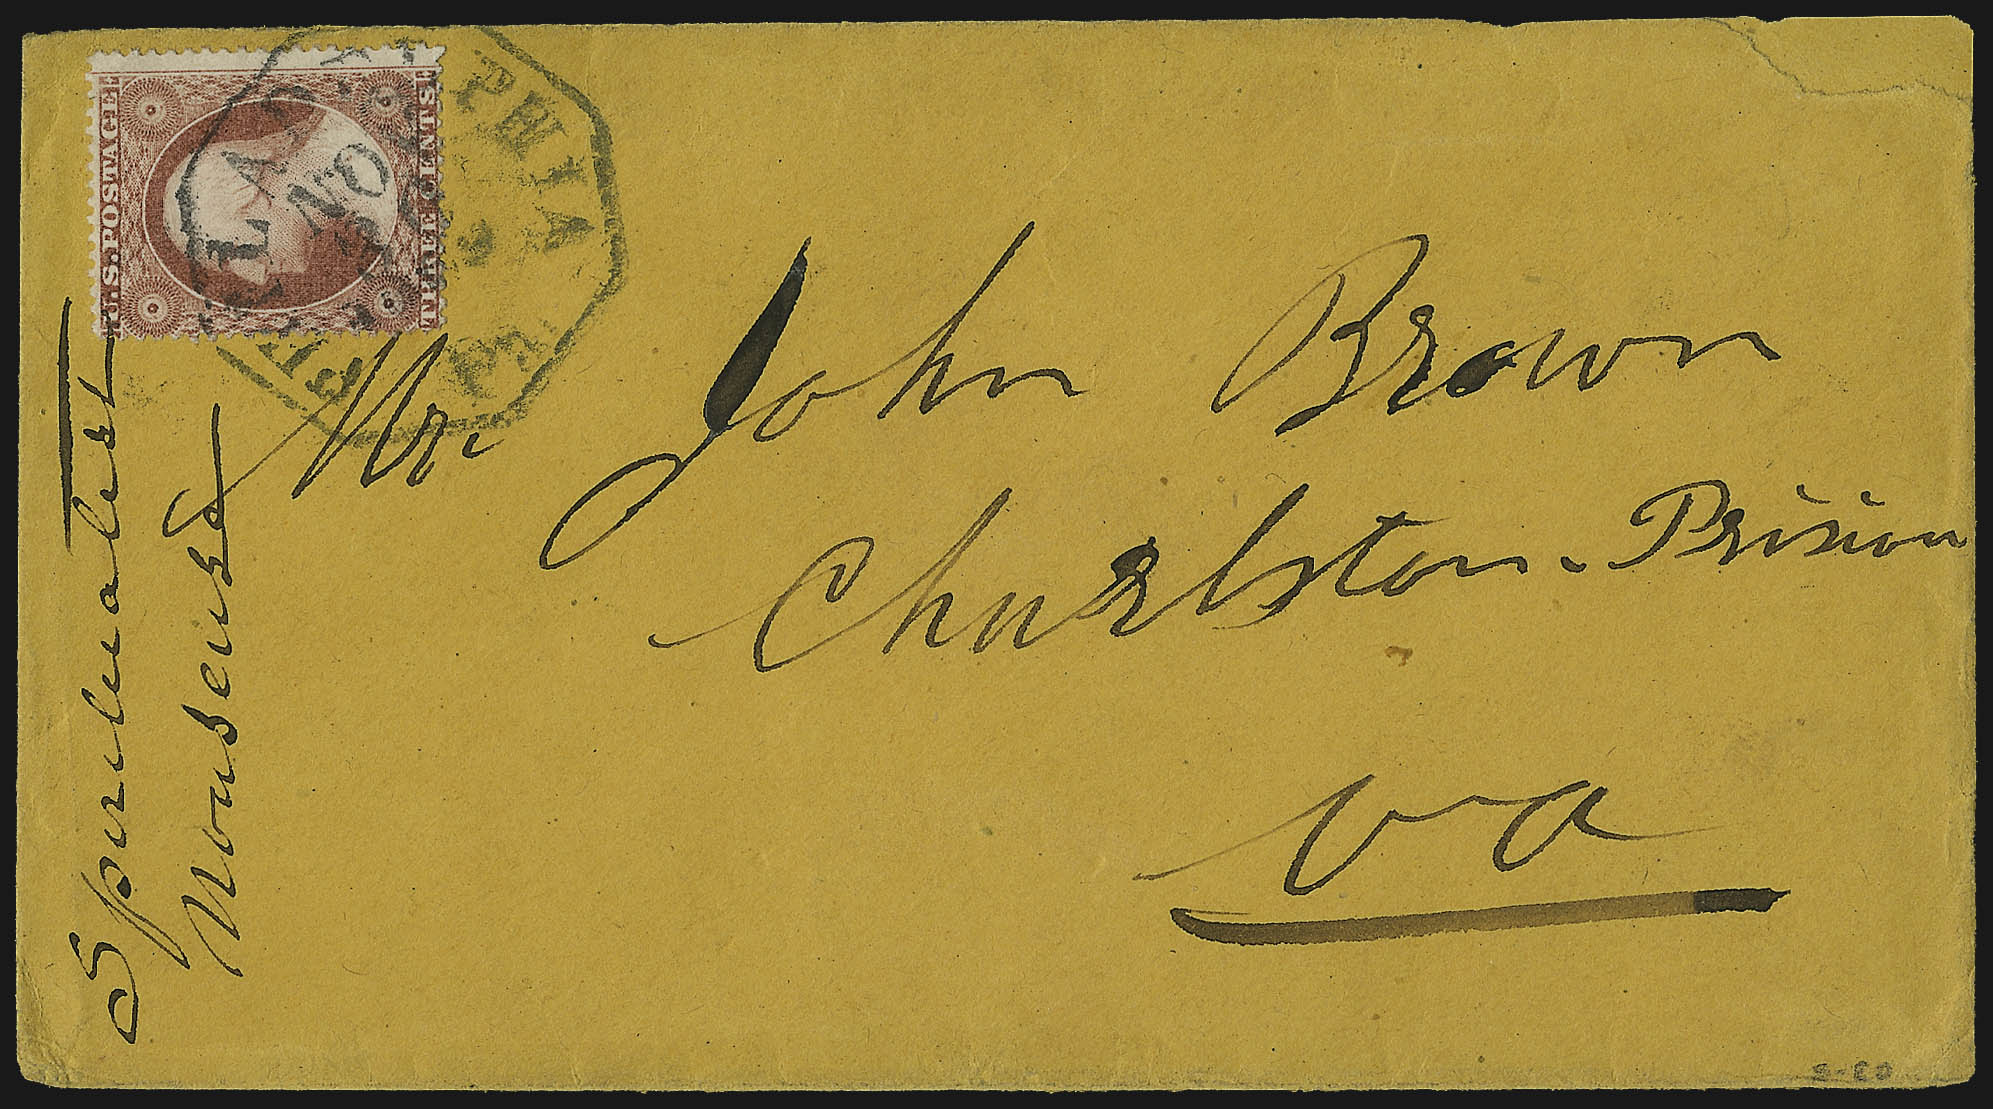 U.S. POSTAGE
THREE CENTS
PHILADELPHIA
NOV
Pa
Mr. John Brown
Charlston - Prision
Va
Spiritualist
Nonsense